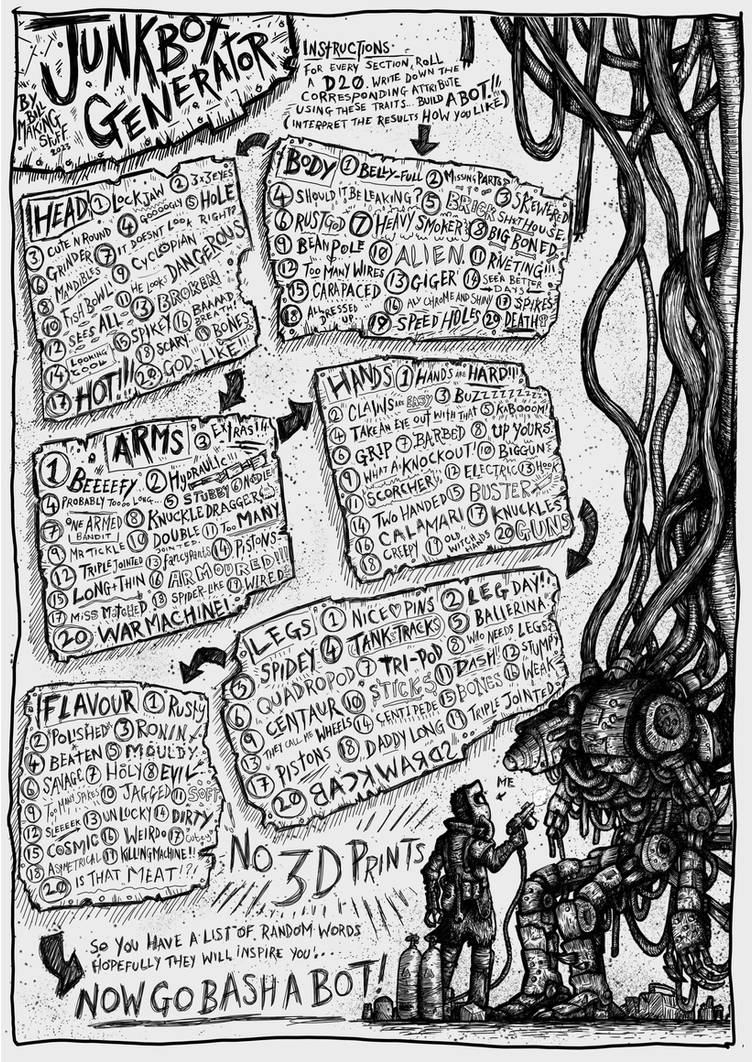 JUNKBOT
GENERATOR
BY
BILL
MAKING
STUFF
2023
INSTRUCTIONS
FOR EVERY SECTION, ROLL
A D20. WRITE DOWN THE
CORRESPONDING ATTRIBUTE
USING THESE TRAITS... BUILD A BOT!!
(INTERPRET THE RESULTS HOW YOU LIKE)
BODY 1 BELLY-FULL 2 MISSING PARTS
3 SKEWERED
4 SHOULD IT BE LEAKING? 5 BRICK SHITHOUSE
6 RUSTGOD 7 HEAVY SMOKER 8 BIG BONED
9 BEANPOLE 10 ALIEN 11 RIVETING!!!
12 TOO MANY WIRES 13 GIGER 14 SEEN BETTER DAYS
15 CARAPACED 16 ALL CHROME AND SHINY 17 SPIKES
18 ALL DRESSED UP 19 SPEED HOLES 20 DEATH
HEAD 1 LOCKJAW 2 3x3 EYES
3 CUTE N ROUND 4 GOOOOGLY 5 HOLE
6 GRINDER 7 IT DOESNT LOOK RIGHT?
8 MANDIBLES 9 CYCLOPIAN
10 FISH BOWL! 11 HE LOOKS DANGEROUS
12 SEES ALL 13 BROKEN
14 LOOKING 15 SPIKEY 16 BAAAAD BREATH!
17 HOT!!! 18 SCARY 19 BONES
20 GOD-LIKE!!!
HANDS 1 HAND'S ARE HARD!!!
2 CLAWS ARE EASY 3 BUZZZZZZZZZ
4 TAKE AN EYE OUT WITH THAT 5 KABOOOM!
6 GRIP 7 BARBED 8 UP YOURS
9 WHAT A KNOCKOUT! 10 BIGGUN
11 SCORCHER! 12 ELECTRIC 13 HOOK
14 TWO HANDED 15 BUSTER
16 CALAMARI 17 KNUCKLES
18 CREEPY 19 OLD WITCH HANDS 20 GUNS
ARMS
1 BEEEEFY 2 HYDRAULIC!!! 3 EXTRAS!
4 PROBABLY TOOOO LONG... 5 STUBBY 6 NOODLE!
7 ONE ARMED BANDIT 8 KNUCKLE DRAGGER
9 MR TICKLE 10 DOUBLE JOINTED 11 TOO MANY
12 TRIPLE JOINTED 13 FANCYPANTS 14 PISTONS
15 LONG+THIN 16 ARMOURED!!!
17 MISS MATCHED 18 SPIDER-LIKE 19 WIRED
20 WAR MACHINE!
LEGS 1 NICE PINS 2 LEG DAY!!
3 SPIDEY 4 TANK TRACKS 5 BALLERINA
6 QUADROPOD 7 TRI-POD 8 WHO NEEDS LEGS
9 CENTAUR 10 STICKS 11 DASH!! 12 STUMPY
13 THEY CALL ME WHEELS 14 CENTIPEDE 15 BONES 16 WEAK
17 PISTONS 18 DADDY LONG 19 TRIPLE JOINTED
20 BACKWARDS
FLAVOUR 1 RUSTY
2 POLISHED 3 RONIN
4 BEATEN 5 MOULDY
6 SAVAGE 7 HOLY 8 EVIL
9 TOO MANY SPIKES 10 JAGGED 11 SOFT
12 SLEEEEK 13 UNLUCKY 14 DIRTY
15 COSMIC 16 WEIRDO 17
18 ASYMETRICAL 19 KILLING MACHINE!!
20 IS THAT MEAT!?!
NO 3D PRINTS
ME
SO YOU HAVE A LIST OF RANDOM WORDS
HOPEFULLY THEY WILL INSPIRE YOU!...
NOW GO BASH A BOT!